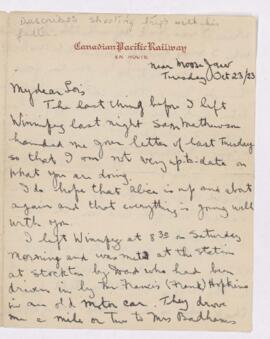 Describes shooting trip with his
father
Canadian Pacific Railway
EN ROUTE
near Moose Jaw
Tuesday Oct 23/23
My dear Lois
The last thing before I left
Winnipeg last night Sam Mathewson
handed me your letter of last Tuesday
so that I am not very up-to-date on
what you are doing.
I do hope that Alice is up and about
again and that everything is going well
with you.
I left Winnipeg at 8 30 on Saturday
morning and was met at the station
at Stockton by Dad who had been
driven in by Mr Francis (Frank) Hopkins
in an old motor car. They drove
me a mile or two to Mrs Badhams